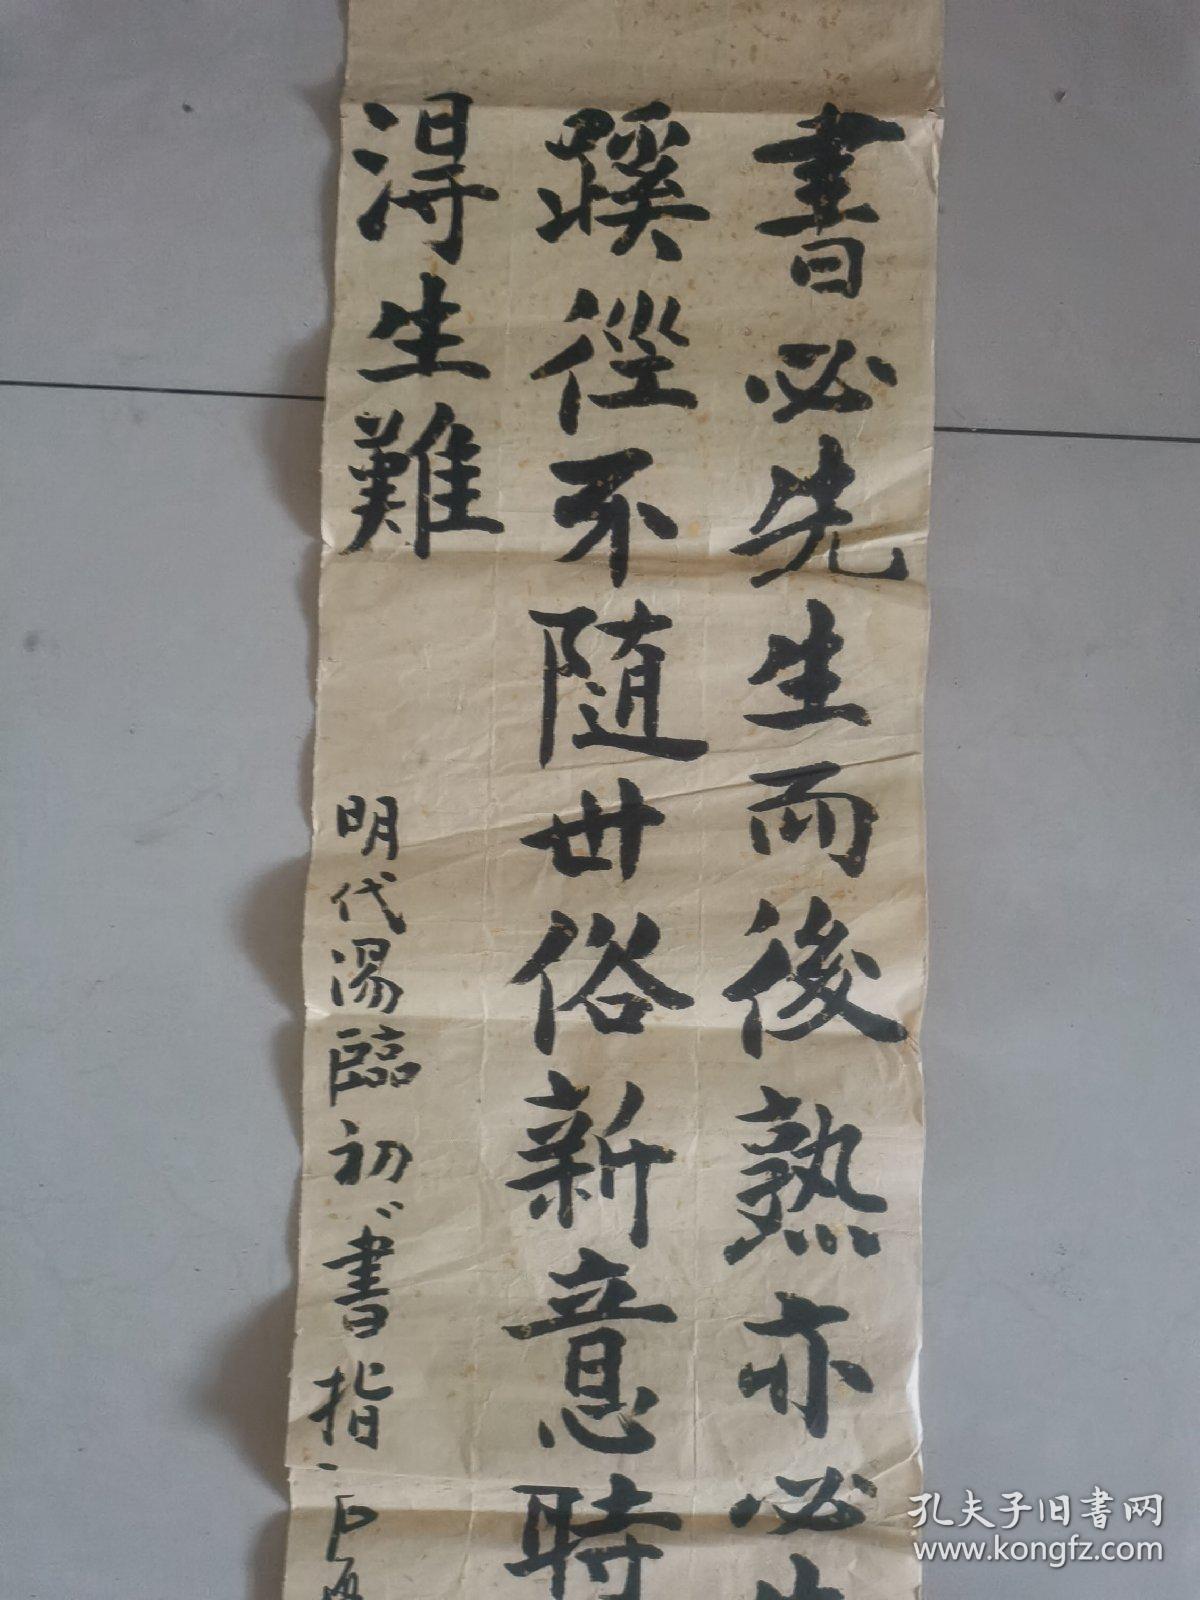 書必先生而後熟亦必先
蹊徑不隨世俗新意時
淂生難
明代湯臨初《書指》
孔夫子旧书网
www.kongfz.com